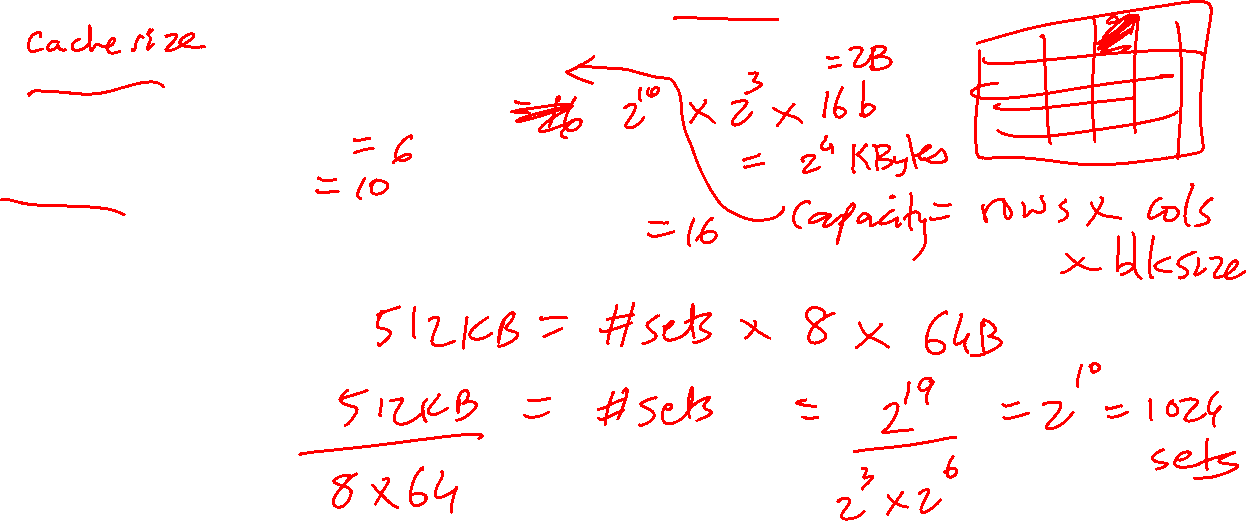 cache size
= 2B
2^10 × 2^3 × 16b
= 2^4 KBytes
= 6
= 10
= 16
Capacity = rows × cols
× blksize
512KB = #sets × 8 × 64B
512KB / 8 × 64 = #sets = 2^19 / 2^3 × 2^6 = 2^10 = 1024
sets